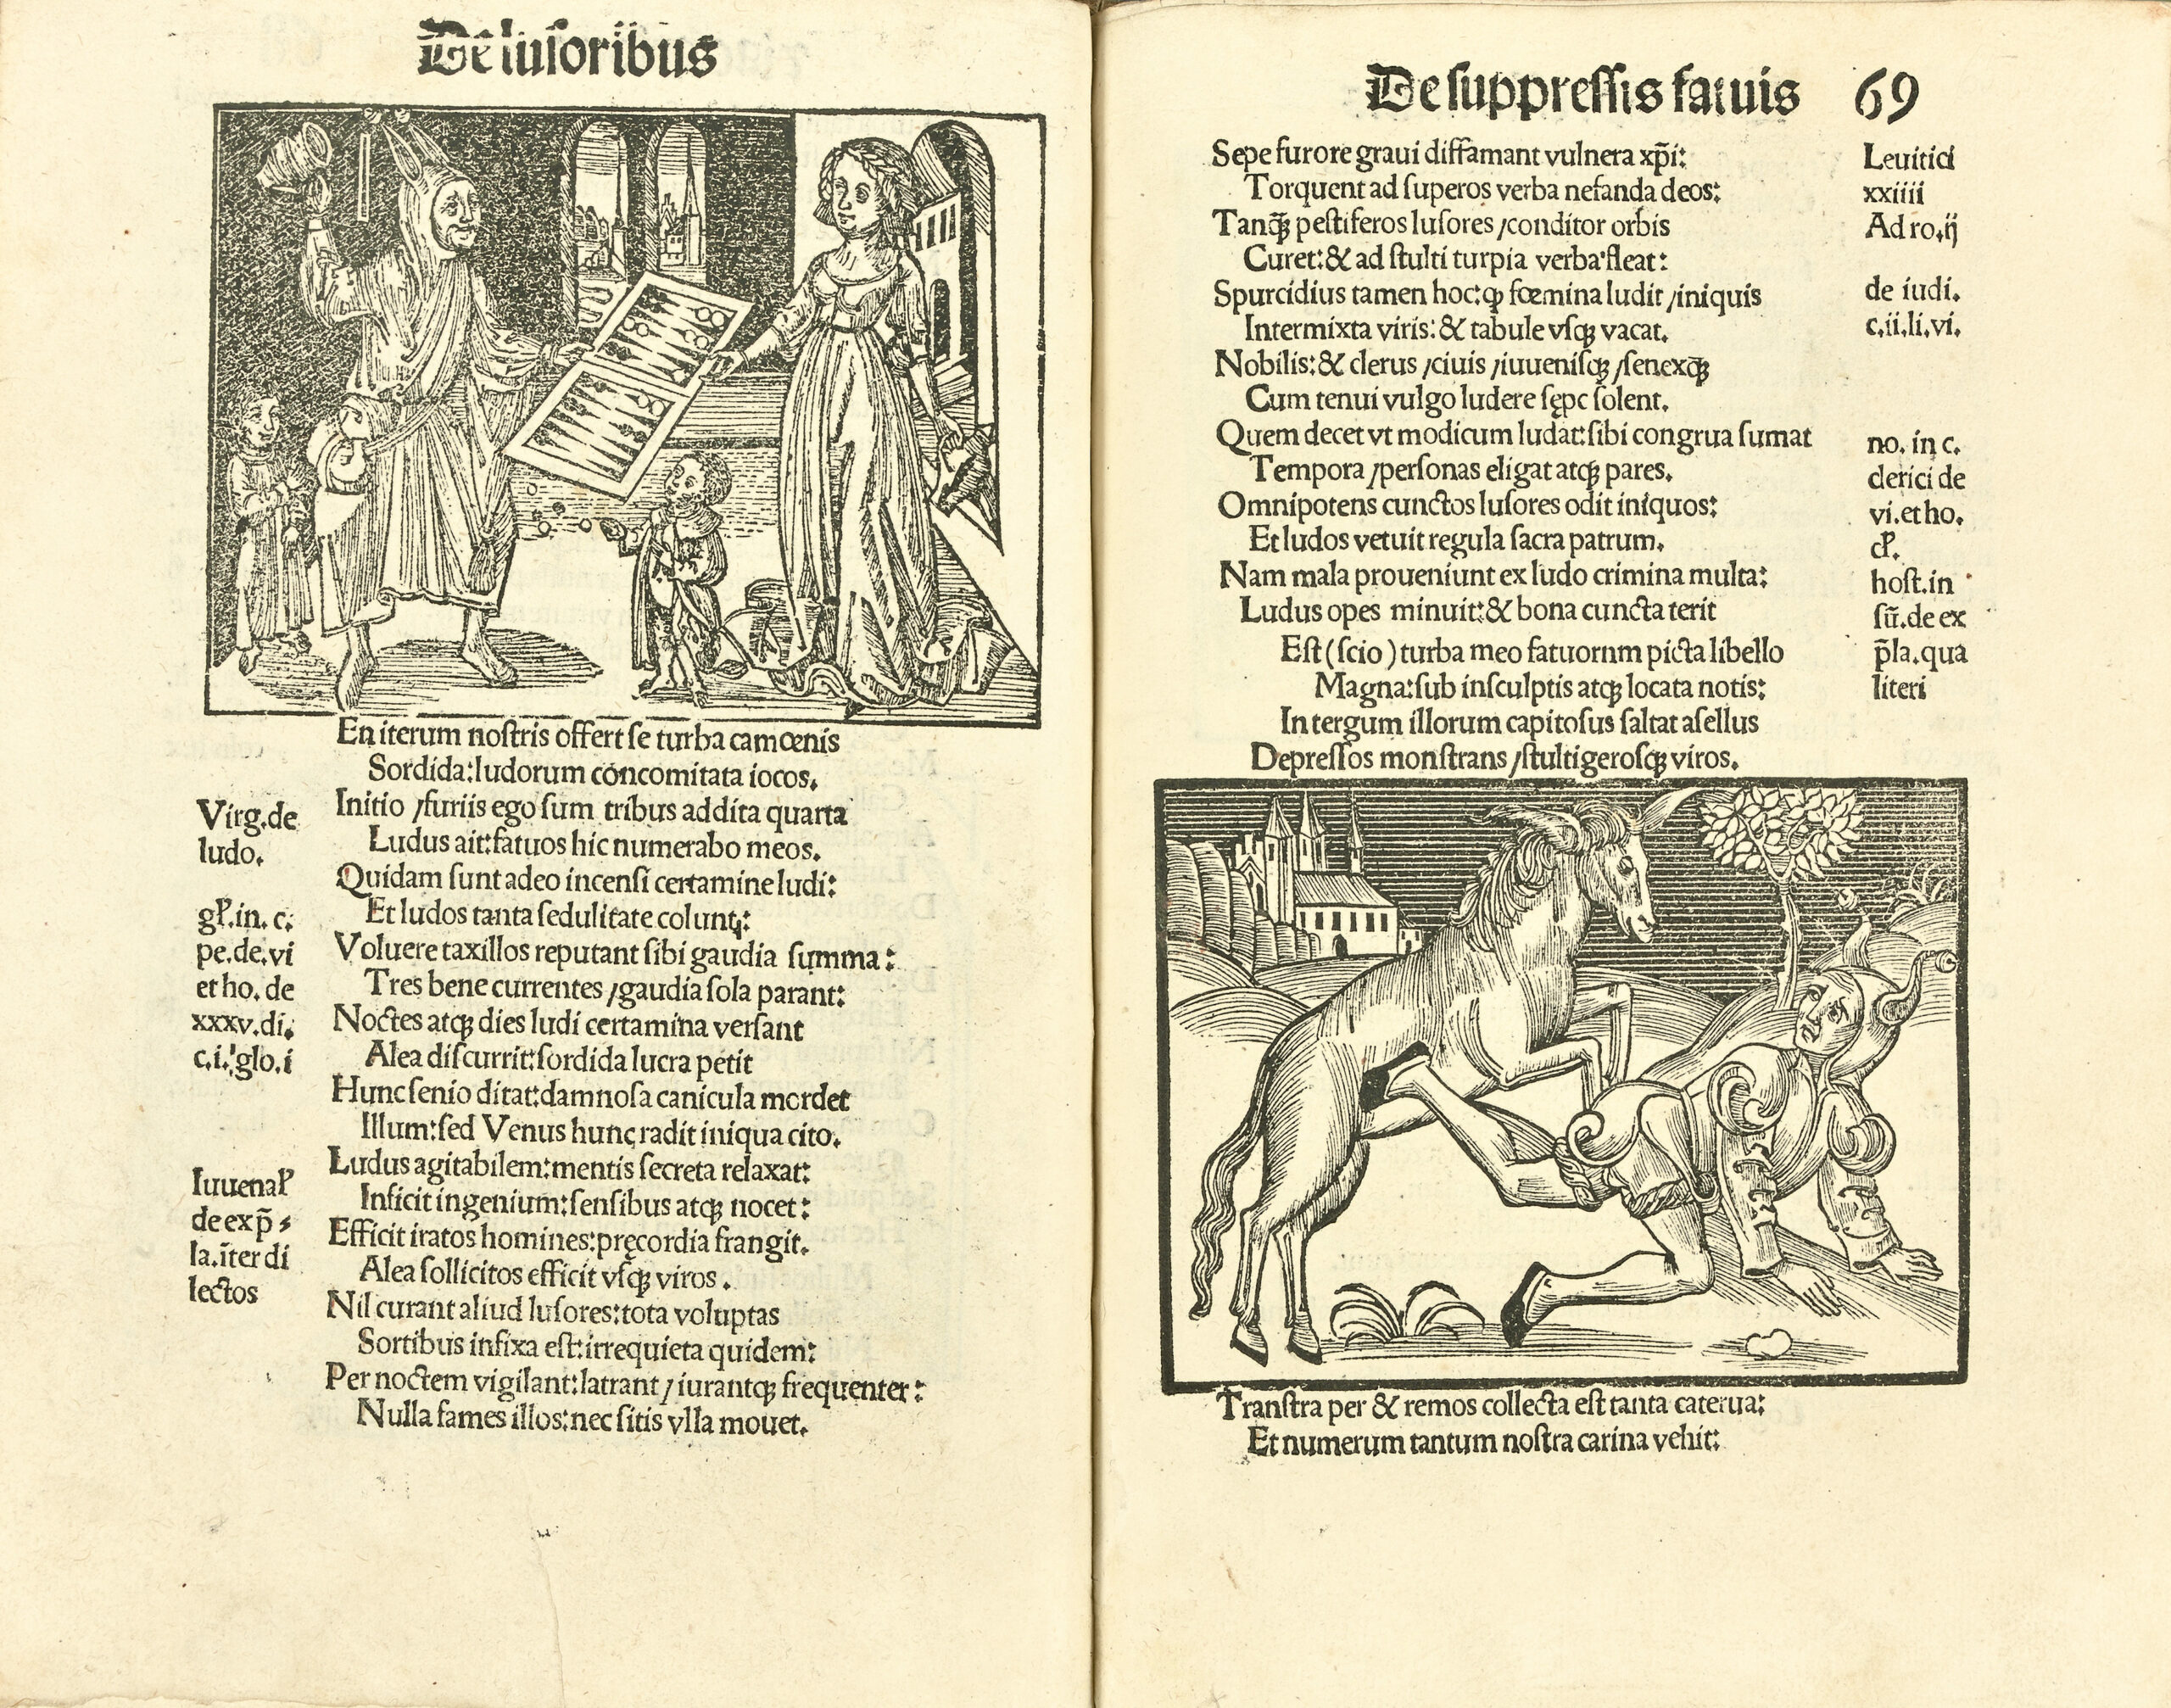 De luſoribus
En iterum noſtris offert ſe turba camœnis
Sordida: ludorum concomitata iocos.
Initio /furiis ego ſum tribus addita quarta
Ludus ait: fatuos hic numerabo meos.
Quidam ſunt adeo incenſi certamine ludi:
Et ludos tanta ſedulitate colunt:
Voluere taxillos reputant ſibi gaudia ſumma:
Tres bene currentes /gaudia ſola parant:
Noctes atqꝫ dies ludi certamina verſant
Alea diſcurrit: ſordida lucra petit
Hunc ſenio ditat: damnoſa canicula mordet
Illum: ſed Venus hunc radit iniqua cito.
Ludus agitabilem: mentis ſecreta relaxat:
Inficit ingenium: ſenſibus atqꝫ nocet:
Efficit iratos homines: pręcordia frangit.
Alea ſollicitos efficit vſqꝫ viros.
Nil curant aliud luſores: tota voluptas
Sortibus infixa eſt: irrequieta quidem:
Per noctem vigilant: latrant / iurantqꝫ frequenter:
Nulla fames illos: nec ſitis vlla mouet.
Virg. de
ludo.
gl̕. in. c.
pe. de. vi
et ho. de
xxxv. di.
c. i. glo. i
Iuuenal̕
de exp̄
la. īter di
lectos
De ſuppreſſis fatuis 69
Sepe furore graui diffamant vulnera xp̄i:
Torquent ad ſuperos verba nefanda deos:
Tanqꝫ peſtiferos luſores /conditor orbis
Curet: & ad ſtulti turpia verba fleat:
Spurcidius tamen hoc: ꝙ fœmina ludit /iniquis
Intermixta viris: & tabule vſqꝫ vacat.
Nobilis: & clerus /ciuis /iuueniſqꝫ /ſenexqꝫ
Cum tenui vulgo ludere ſępe ſolent.
Quem decet vt modicum ludat: ſibi congrua ſumat
Tempora /perſonas eligat atqꝫ pares.
Omnipotens cunctos luſores odit iniquos:
Et ludos vetuit regula ſacra patrum.
Nam mala proueniunt ex ludo crimina multa:
Ludus opes minuit: & bona cuncta terit
Eſt (ſcio) turba meo fatuornm picta libello
Magna: ſub inſculptis atqꝫ locata notis:
In tergum illorum capitoſus ſaltat aſellus
Depreſſos monſtrans /ſtultigeroſqꝫ viros.
Leuitici
xxiiii
Ad ro. ij
de iudi.
c. ii. li. vi.
no. in c.
clerici de
vi. et ho.
cl̕.
hoſt. in
ſū. de ex
p̄la. qua
literi
Tranſtra per & remos collecta eſt tanta caterua:
Et numerum tantum noſtra carina vehit: